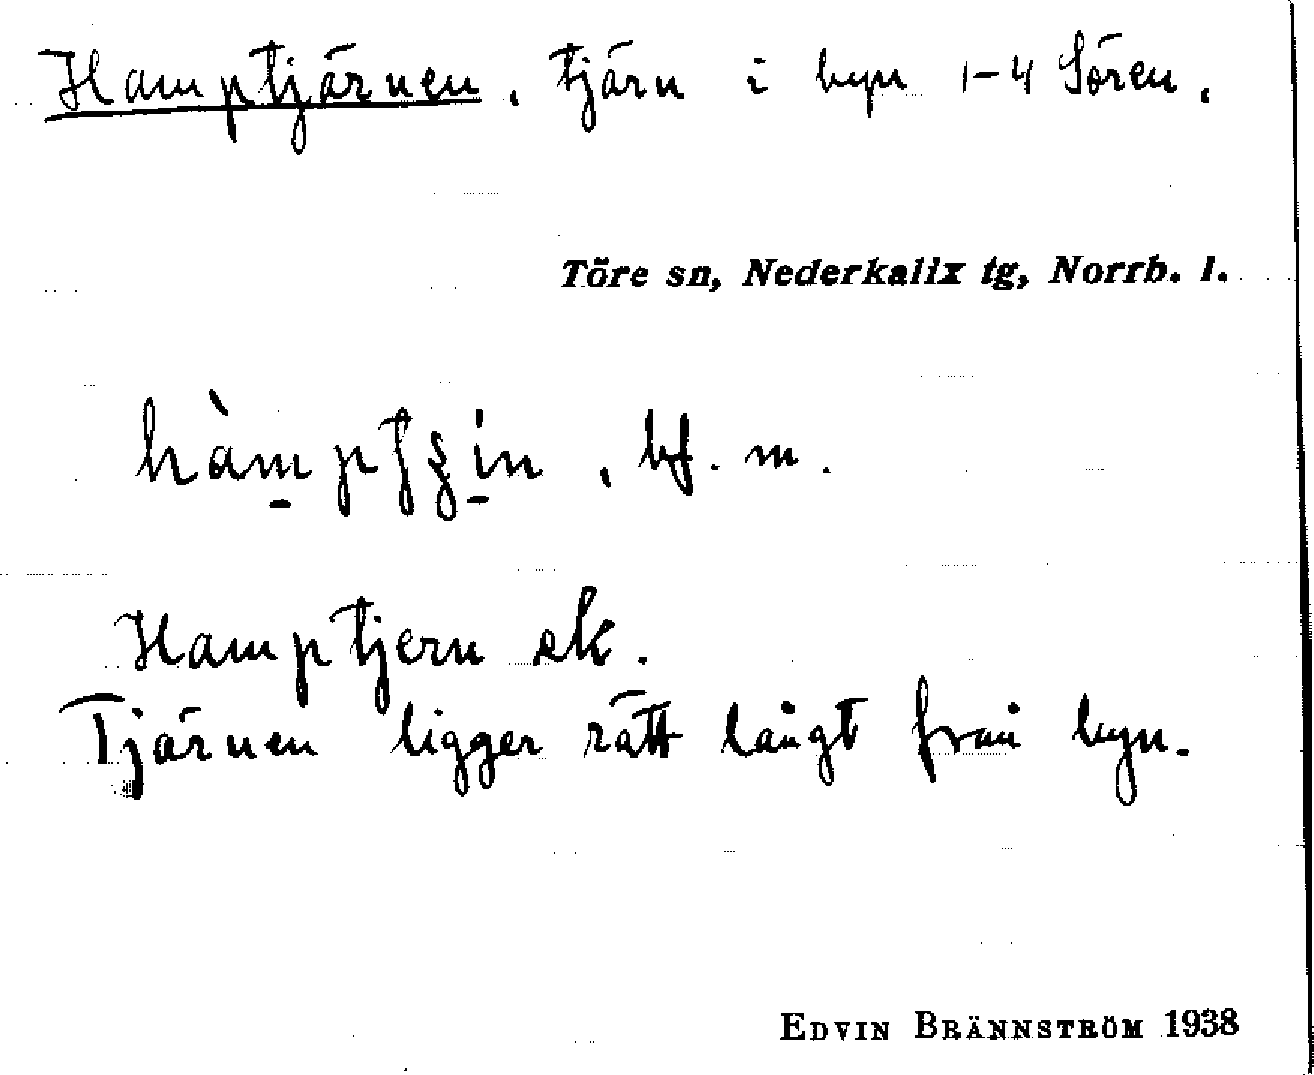 Hamptjärnen, tjärn i byn 1-4 Sören.
Töre sn, Nederkalix tg, Norrb. l.
bf. m.
Hamptjern ek.
Tjärnen ligger rätt långt från byn.
EDVIN BRÄNNSTRÖM 1938